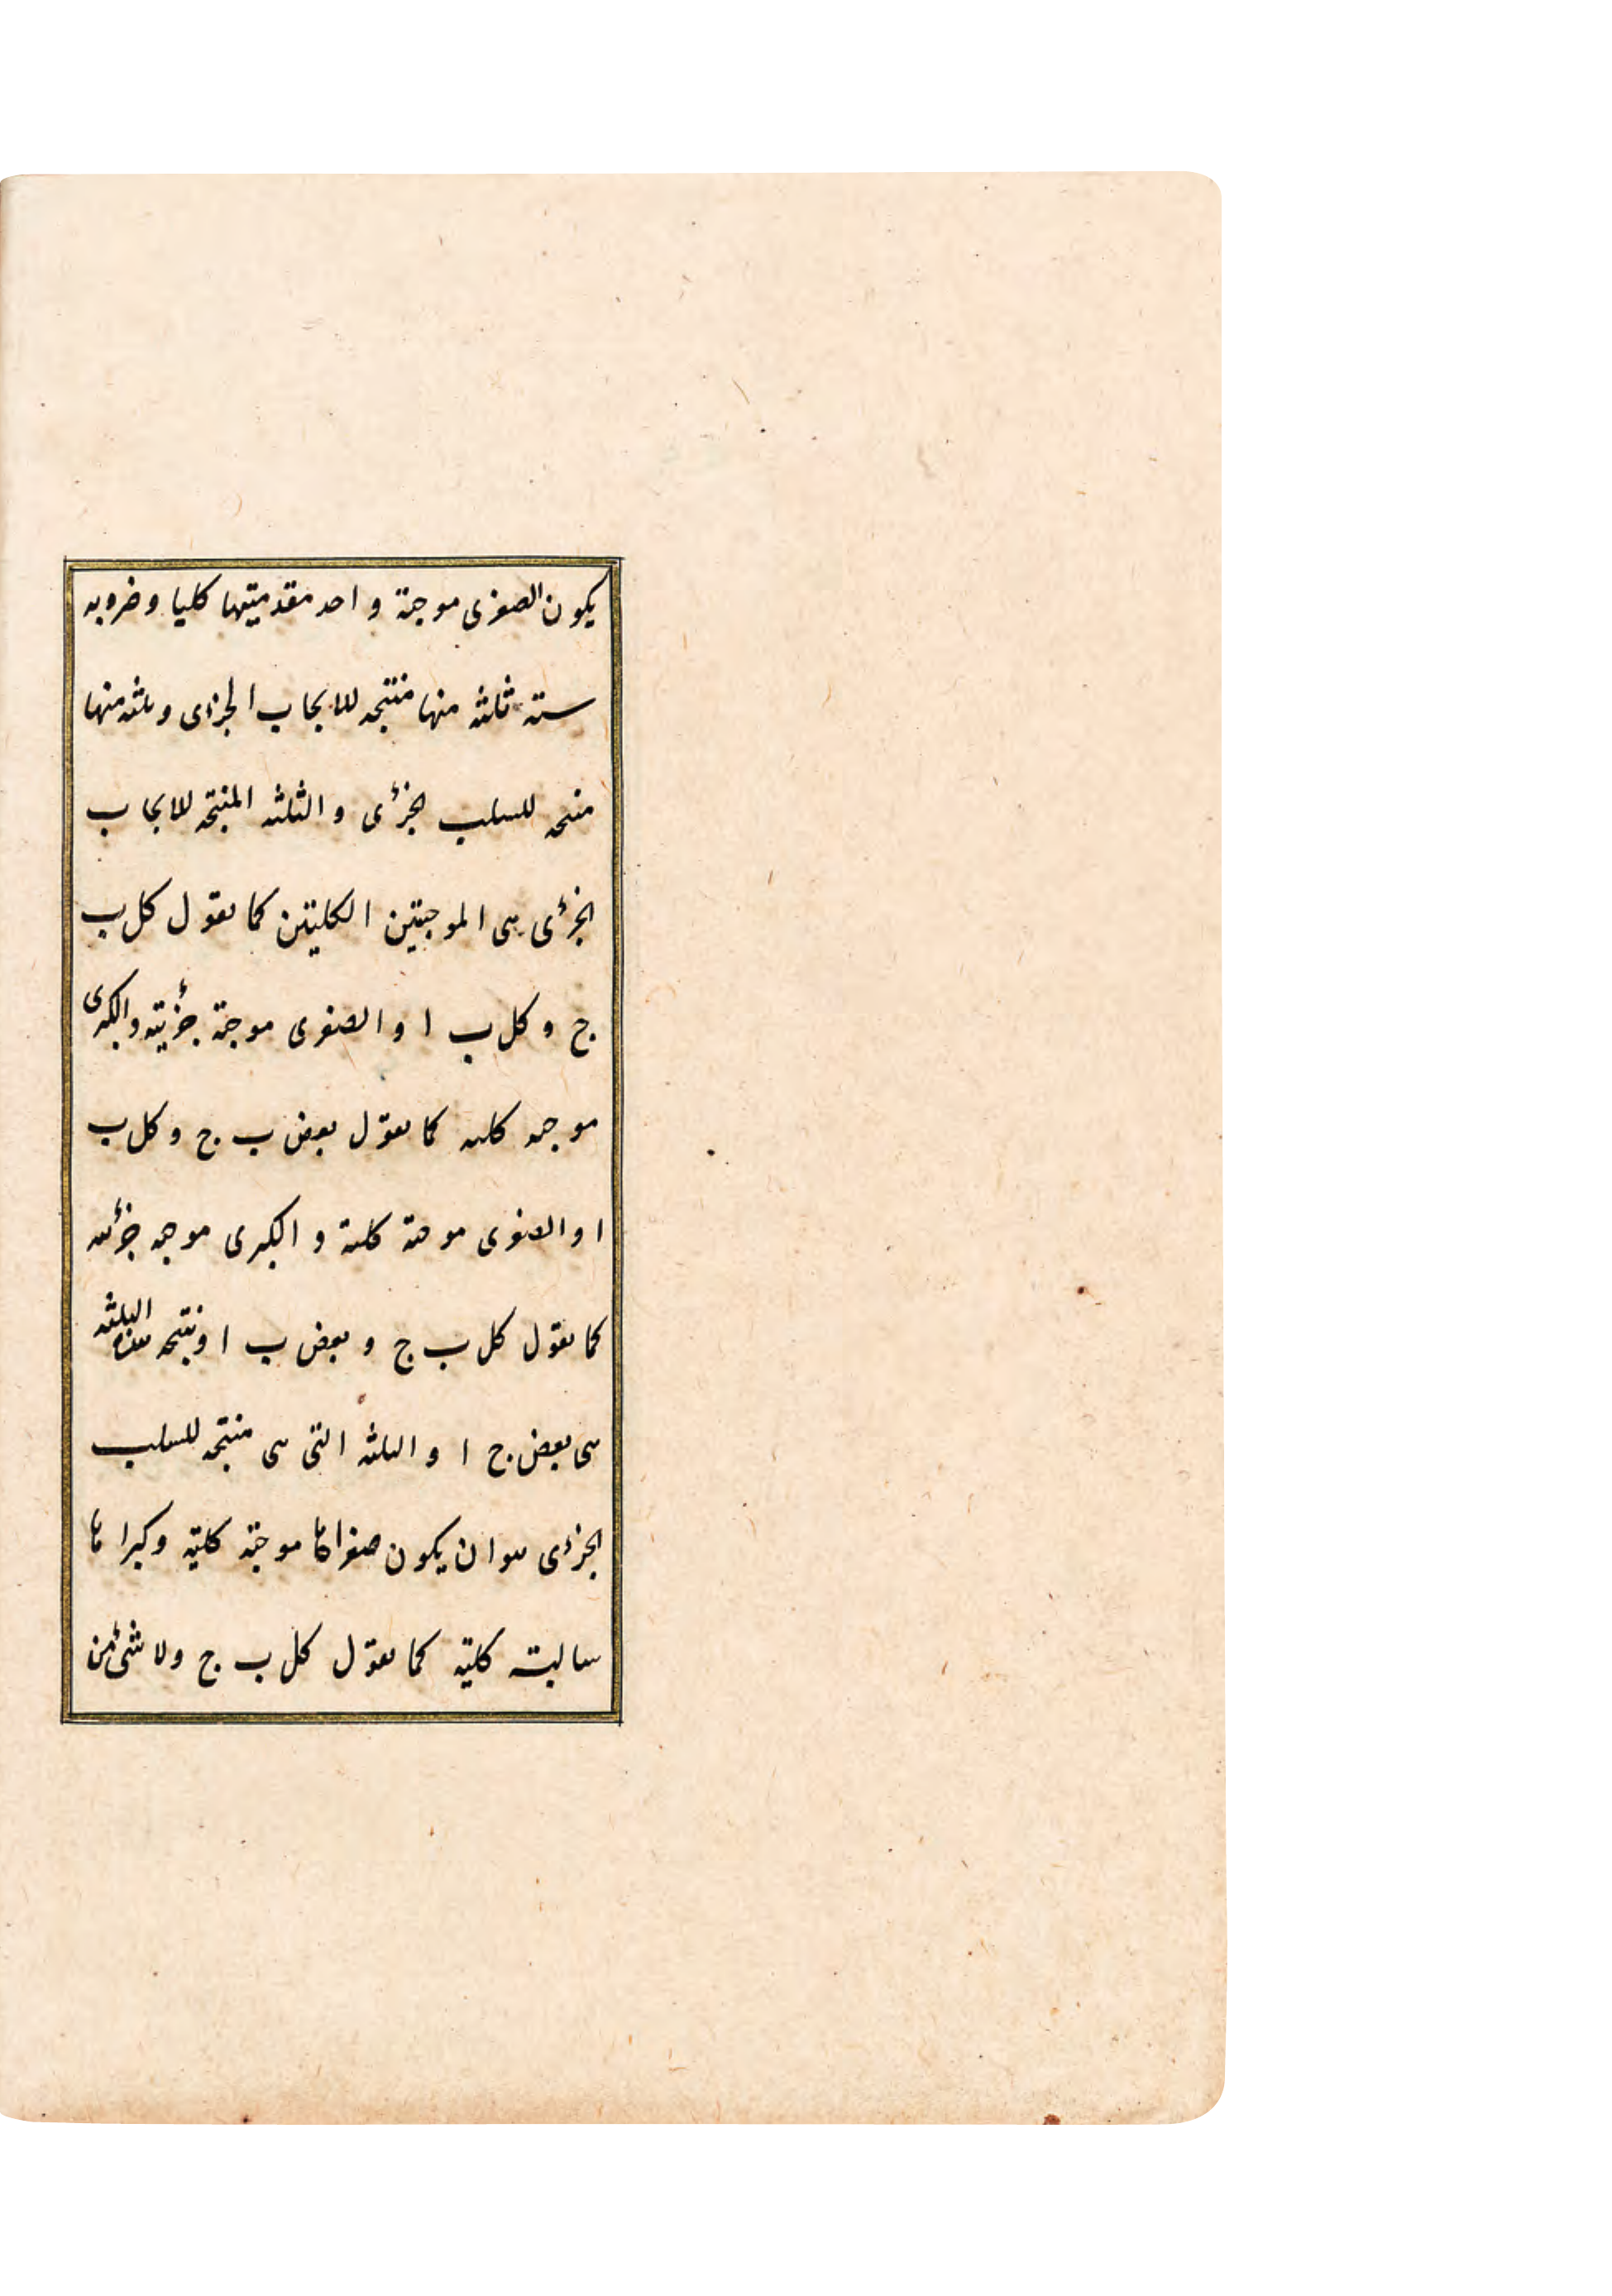 يكون الصغرى موجبة و احد مقدمتيها كليا وضروبه
ستة ثلثة منها منتجه للايجاب الجزءى وثلثه منها
منتجه للسلب الجزئى و الثلثه المنتجه للايجاب
الجزئى هى الموجبتين الكليتين كما نقول كل ب
ج و كل ب ا و الصغرى موجبة جزئيته والكبرى
موجبه كليه كما نقول بعض ب ج و كل ب
ا و الصغرى موجبة كلية و الكبرى موجبه جزئيه
كما نقول كل ب ج و بعض ب ا ونتيجه هذه الثلثه
هى بعض ج ا و الثلثه التى هى منتجه للسلب
الجزءى هو ان يكون صغراها موجبة كليّه وكبراها
سالبته كليّه كما نقول كل ب ج ولا شئ من